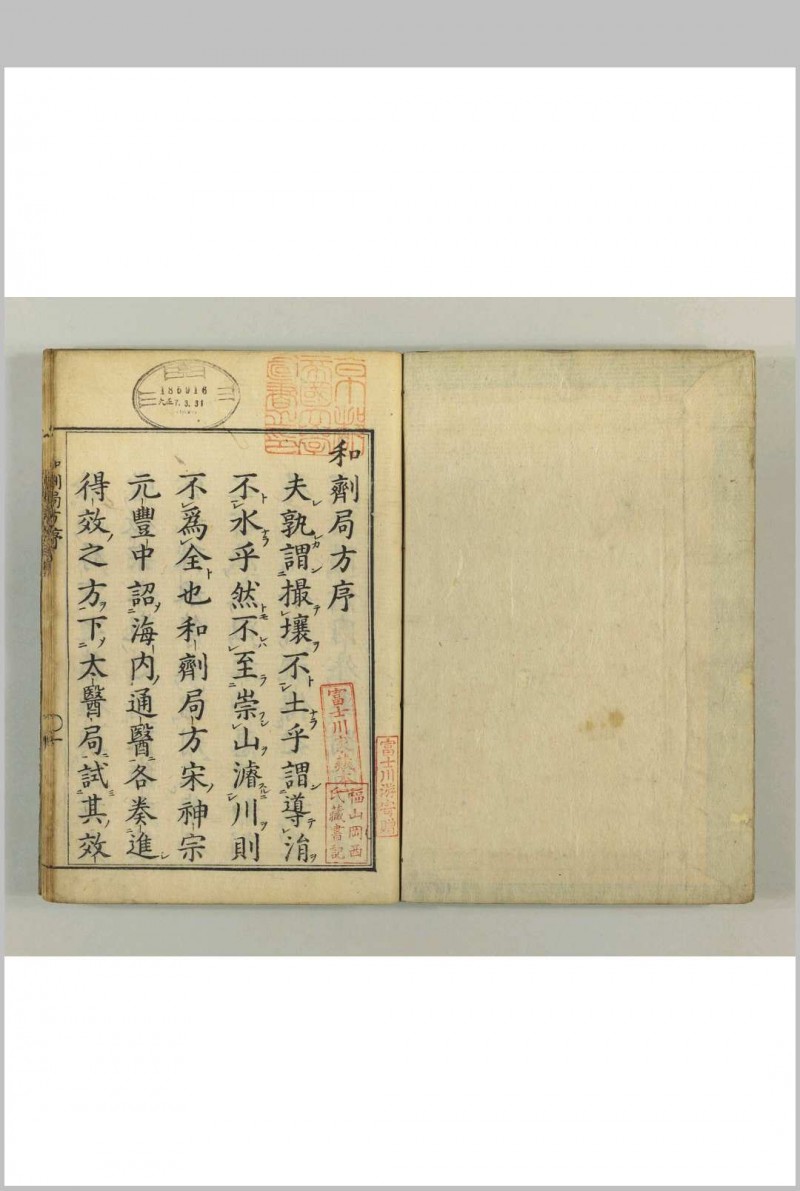 和劑局方序
夫孰謂撮壤不土乎謂導涓
不水乎然不至崇山濬川則
不爲全也和劑局方宋神宗
元豐中詔海内通醫各奏進
得效之方下太醫局試其效
和劑局方序
186916
大正7.3.31
富士川
福山岡西
氏藏書記
富士川游寄贈